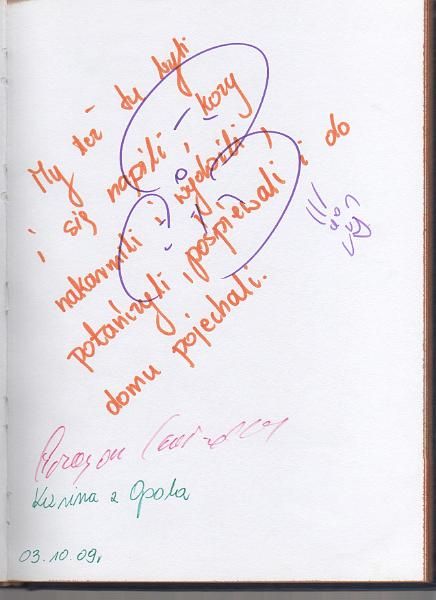 My też tu byli
i się napili, kozy
nakarmili i wydoili,
potańczyli, pośpiewali i do
domu pojechali.
Karina z Opola
03.10.09r.